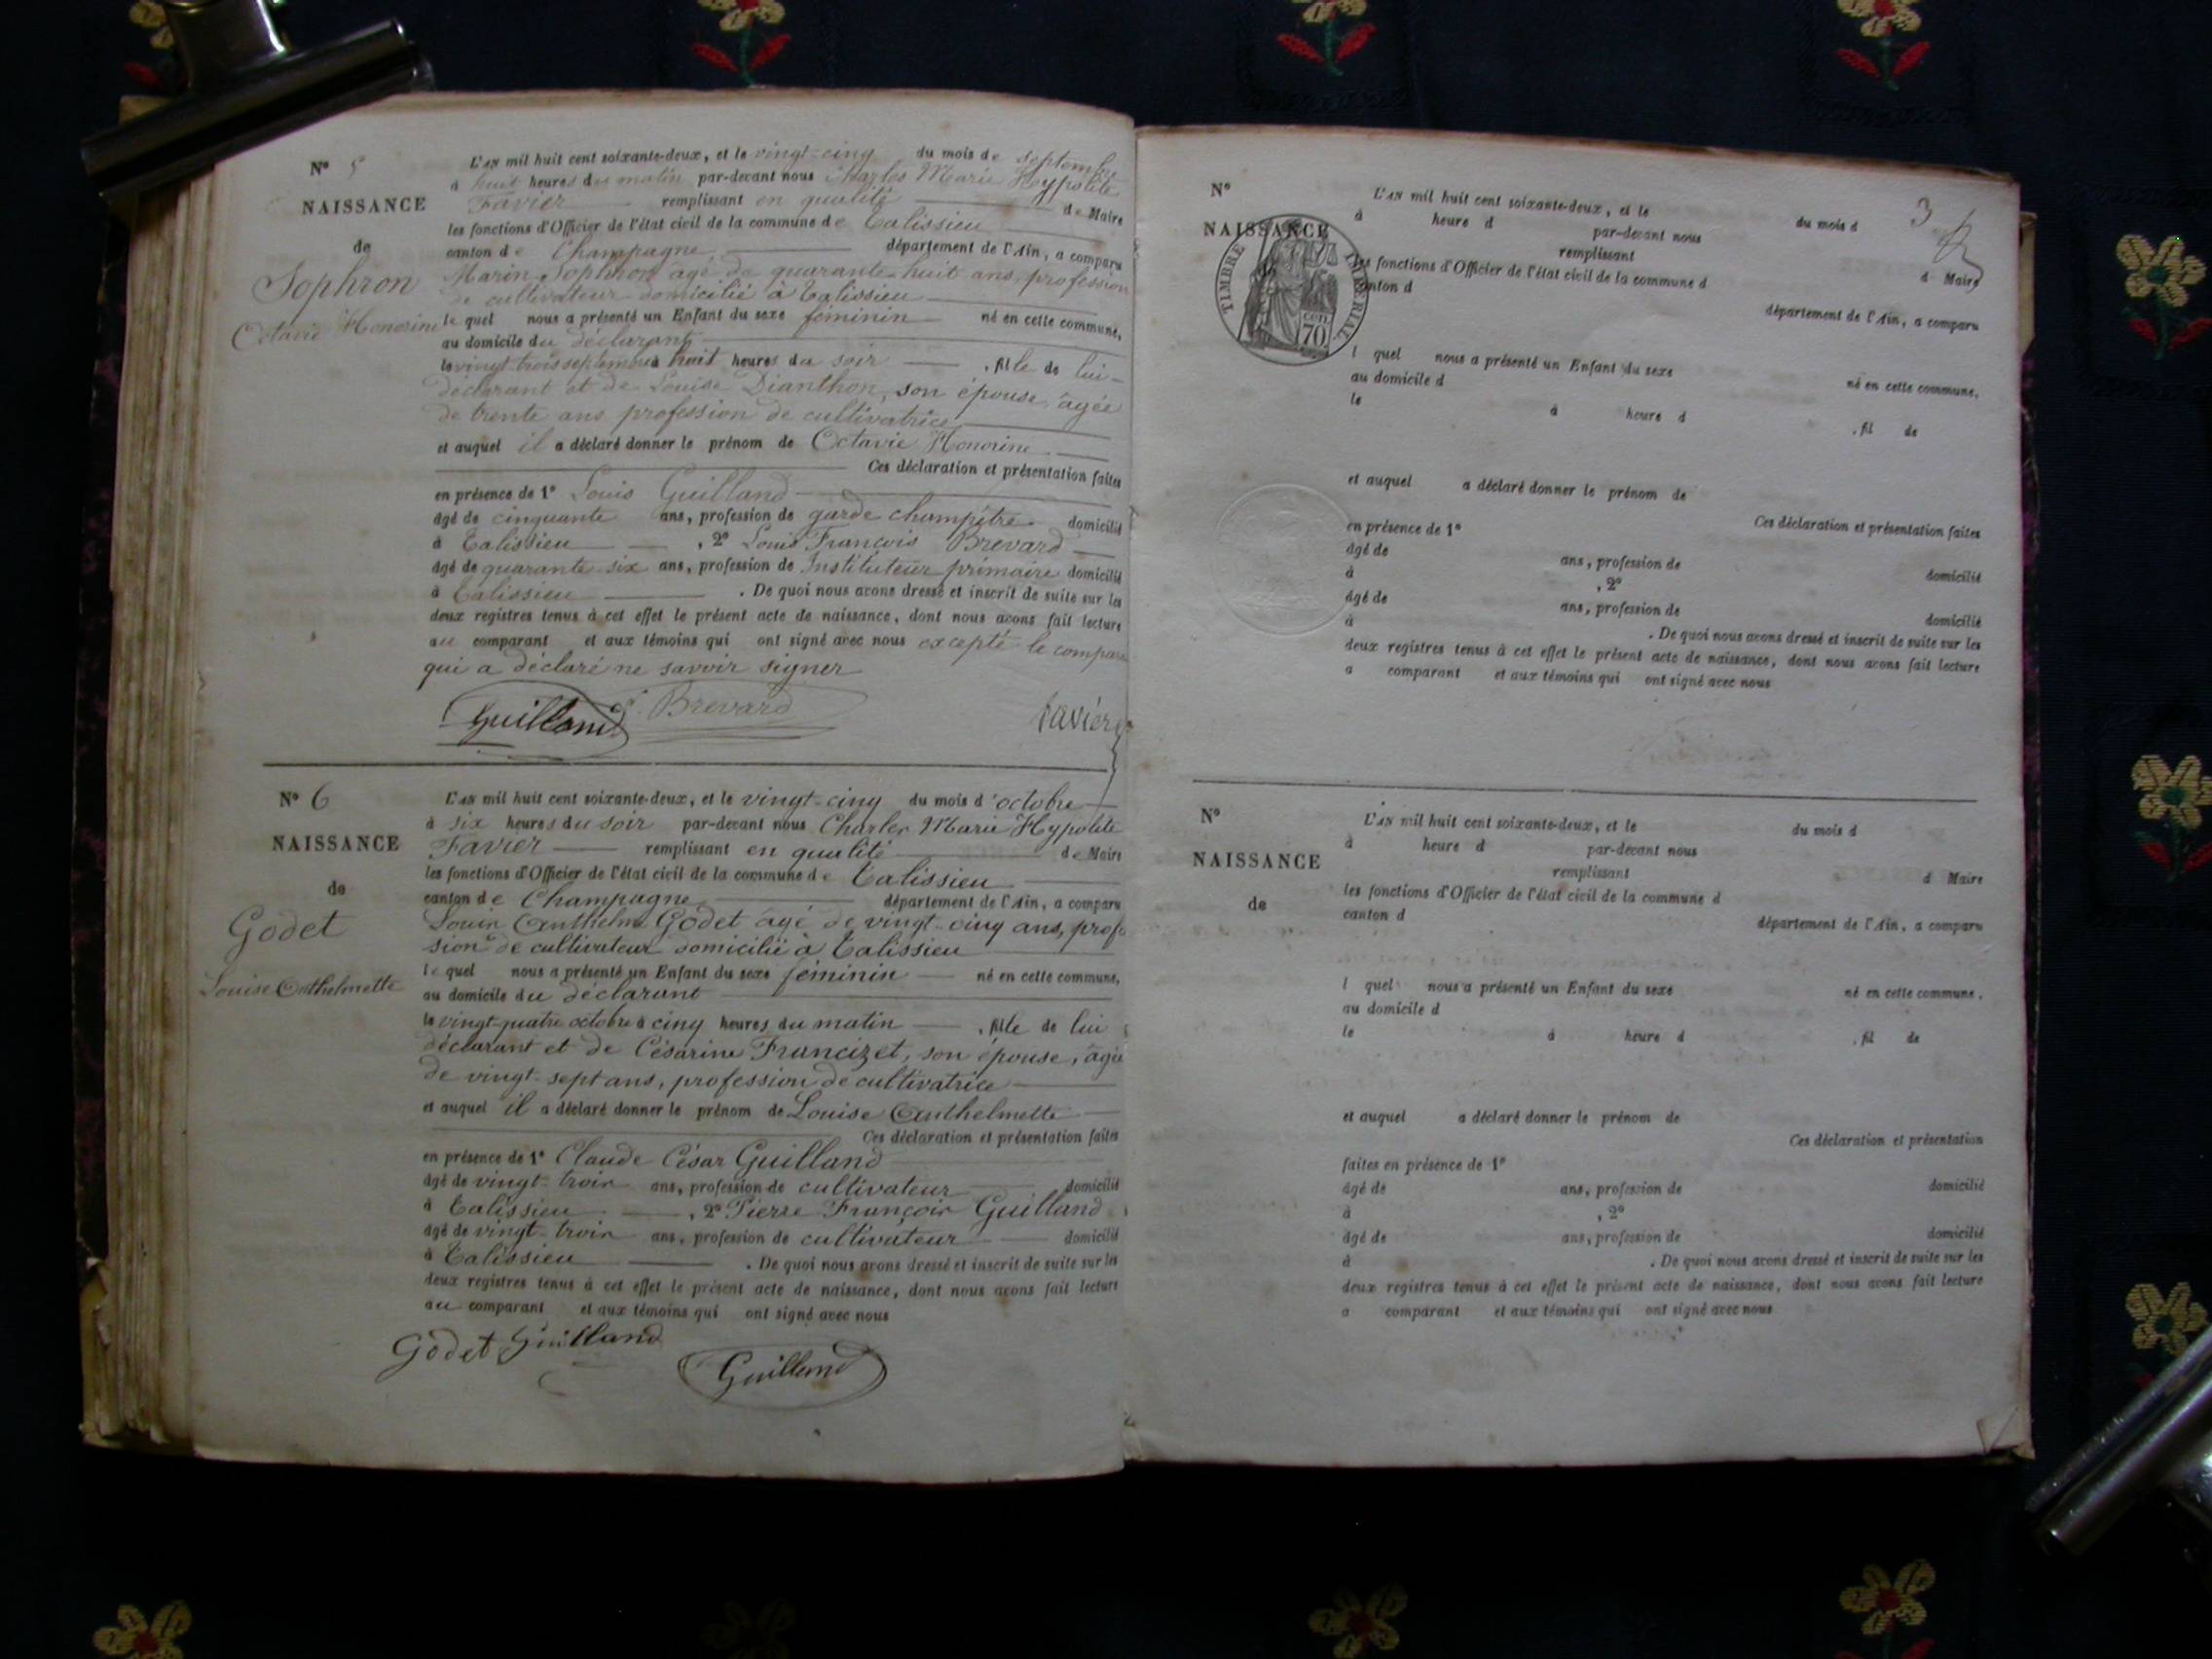 N° 5
NAISSANCE
de
Sophron
Octavie Honorine
L'AN mil huit cent soixante-deux, et le vingt-cinq du mois de septembre
à huit heures du matin par-devant nous Charles Marie Hypolite
Favier remplissant en qualité de Maire
les fonctions d'Officier de l'état civil de la commune de Talissieu
canton de Champagne, département de l'Ain, a comparu
Marin Sophron agé de quarante-huit ans, profession
de cultivateur domicilié à Talissieu
lequel nous a présenté un Enfant du sexe féminin né en cette commune,
au domicile du déclarant
le vingt-trois septembre à huit heures du soir , fille de lui
déclarant et de Louise Dianthon, son épouse, agée
de trente ans profession de cultivatrice
et auquel il a déclaré donner le prénom de Octavie Honorine
Ces déclaration et présentation faites
en présence de 1° Louis Guilland
âgé de cinquante ans, profession de garde champêtre domicilié
à Talissieu , 2° Louis François Brevard
âgé de quarante-six ans, profession de Instituteur primaire domicilié
à Talissieu . De quoi nous avons dressé et inscrit de suite sur les
deux registres tenus à cet effet le présent acte de naissance, dont nous avons fait lecture
au comparant et aux témoins qui ont signé avec nous excepté le compara
qui a déclaré ne savoir signer
Guilland Brevard Favier
N° 6
NAISSANCE
de
Godet
Louise Anthelmette
L'AN mil huit cent soixante-deux, et le vingt-cinq du mois d'octobre
à six heures du soir par-devant nous Charles Marie Hypolite
Favier remplissant en qualité de Maire
les fonctions d'Officier de l'état civil de la commune de Talissieu
canton de Champagne, département de l'Ain, a comparu
Louis Anthelme Godet âgé de vingt-cinq ans, profes
sion de cultivateur domicilié à Talissieu
lequel nous a présenté un Enfant du sexe féminin né en cette commune,
au domicile du déclarant
le vingt-quatre octobre à cinq heures du matin , fille de lui
déclarant et de Césarine Francizet, son épouse, âgée
de vingt-sept ans, profession de cultivatrice
et auquel il a déclaré donner le prénom de Louise Anthelmette
Ces déclaration et présentation faites
en présence de 1° Claude César Guilland
âgé de vingt-trois ans, profession de cultivateur domicilié
à Talissieu , 2° Pierre François Guilland
âgé de vingt-trois ans, profession de cultivateur domicilié
à Talissieu . De quoi nous avons dressé et inscrit de suite sur les
deux registres tenus à cet effet le présent acte de naissance, dont nous avons fait lecture
au comparant et aux témoins qui ont signé avec nous
Godet Guilland
Guilland
3
N°
NAISSANCE
TIMBRE IMPERIAL
CEN. 70
L'AN mil huit cent soixante-deux, et le du mois d
à heure d par-devant nous
remplissant d Maire
les fonctions d'Officier de l'état civil de la commune d
canton d département de l'Ain, a comparu
l quel nous a présenté un Enfant du sexe né en cette commune,
au domicile d
le à heure d , fil de
et auquel a déclaré donner le prénom de
Ces déclaration et présentation faites
en présence de 1°
âgé de ans, profession de domicilié
à , 2°
âgé de ans, profession de domicilié
à . De quoi nous avons dressé et inscrit de suite sur les
deux registres tenus à cet effet le présent acte de naissance, dont nous avons fait lecture
a comparant et aux témoins qui ont signé avec nous
N°
NAISSANCE
de
L'AN mil huit cent soixante-deux, et le du mois d
à heure d par-devant nous
remplissant d Maire
les fonctions d'Officier de l'état civil de la commune d
canton d département de l'Ain, a comparu
l quel nous a présenté un Enfant du sexe né en cette commune,
au domicile d
le à heure d , fil de
et auquel a déclaré donner le prénom de
Ces déclaration et présentation
faites en présence de 1°
âgé de ans, profession de domicilié
à , 2°
âgé de ans, profession de domicilié
à . De quoi nous avons dressé et inscrit de suite sur les
deux registres tenus à cet effet le présent acte de naissance, dont nous avons fait lecture
a comparant et aux témoins qui ont signé avec nous